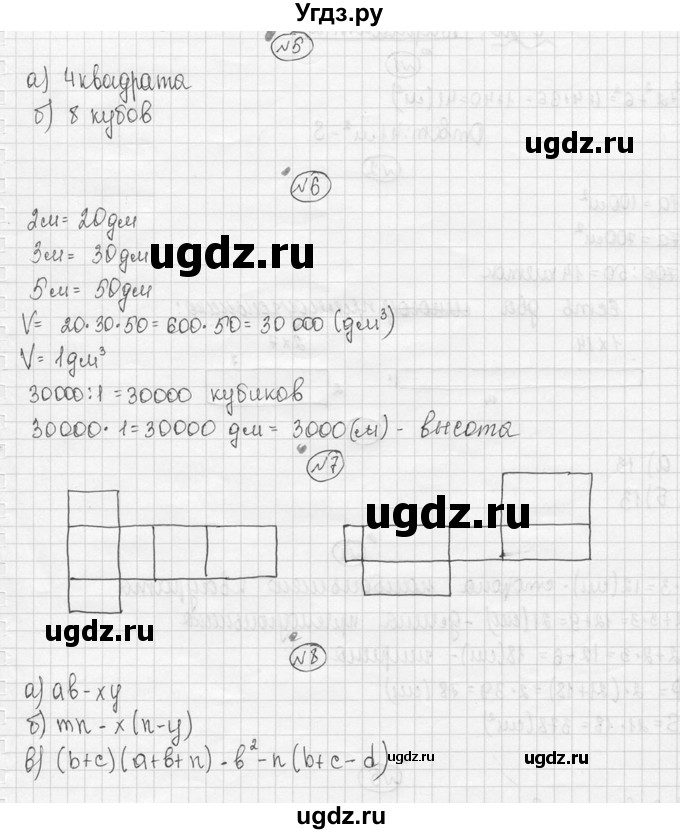 Угдз.ру
№5
а) 4 квадрата
б) 8 кубов
№6
2м = 20дм
3м = 30дм
ugdz.ru
5м = 50дм
V = 20·30·50 = 600·50 = 30 000 (дм³)
V = 1дм³
30000:1 = 30000 кубиков
30000·1 = 30000 дм = 3000(м) - высота
№7
ugdz.ru
ugdz.ru
№8
а) ab - xy
б) mn - x(n-y)
в) (b+c)(a+b+n) - b² - n(b+c-d)
ugdz.ru
ugdz.ru
ugdz.ru